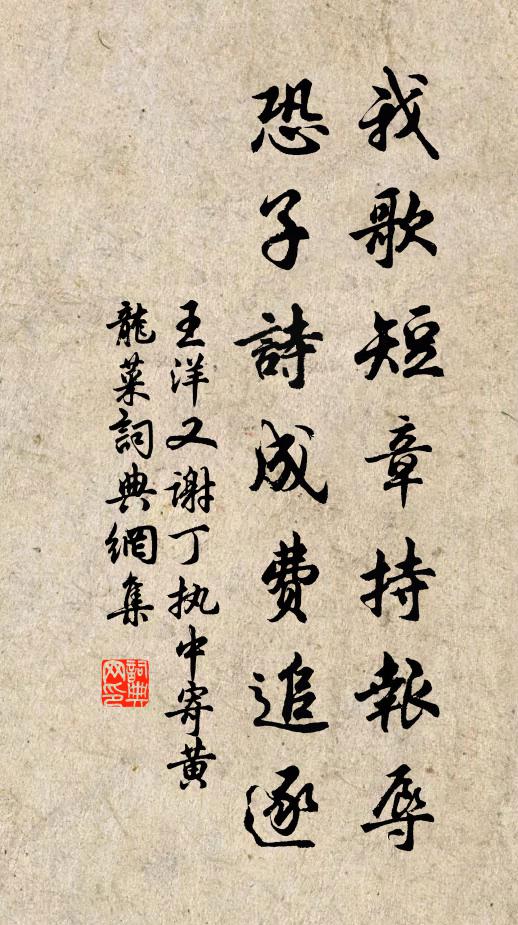 我歌短章持報辱
恐子詩成費追逐
王洋又谢丁执中寄黄
龍菜詞典網集
詞典网印